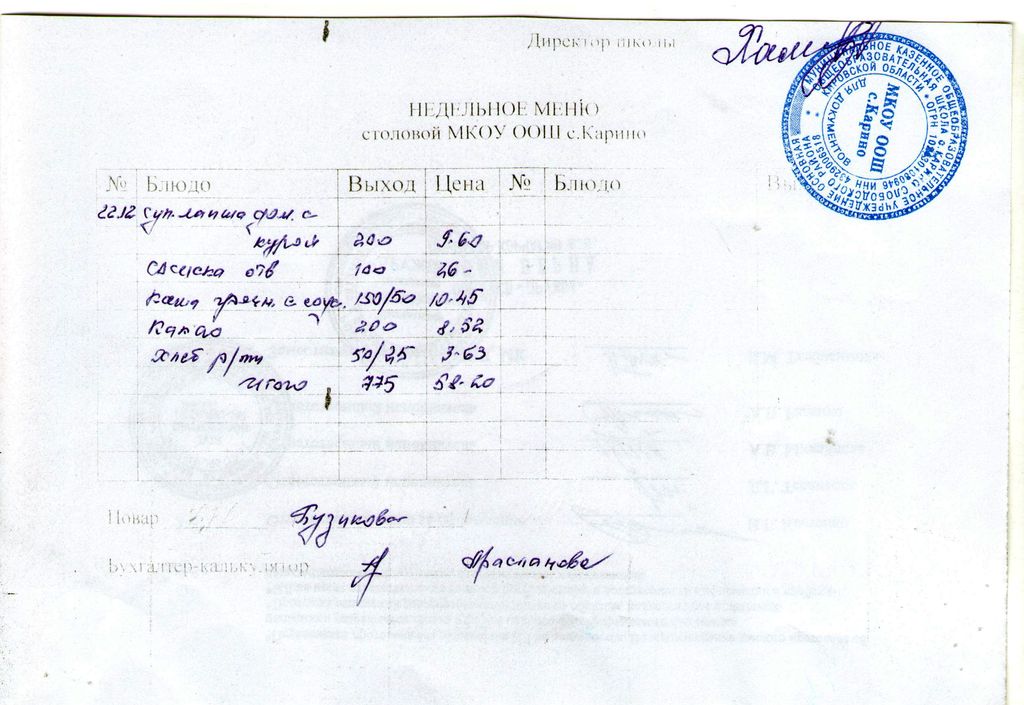 Директор школы
НЕДЕЛЬНОЕ МЕНЮ
столовой МКОУ ООШ с.Карино
№ Блюдо Выход Цена № Блюдо
22.12 Суп лапша дом. с
курой 200 9-60
Сосиска отв 100 26-
Каша гречн. с соус. 150/50 10-45
Какао 200 8.52
Хлеб р/пш 50/25 3-63
Итого 775 58-20
Повар Бузикова
Бухгалтер-калькулятор
МУНИЦИПАЛЬНОЕ КАЗЕННОЕ ОБЩЕОБРАЗОВАТЕЛЬНОЕ УЧРЕЖДЕНИЕ ОСНОВНАЯ
ОБЩЕОБРАЗОВАТЕЛЬНАЯ ШКОЛА с.КАРИНО СЛОБОДСКОГО РАЙОНА
КИРОВСКОЙ ОБЛАСТИ * ОГРН ИНН 4329006518
ДЛЯ ДОКУМЕНТОВ
МКОУ ООШ
с.Карино